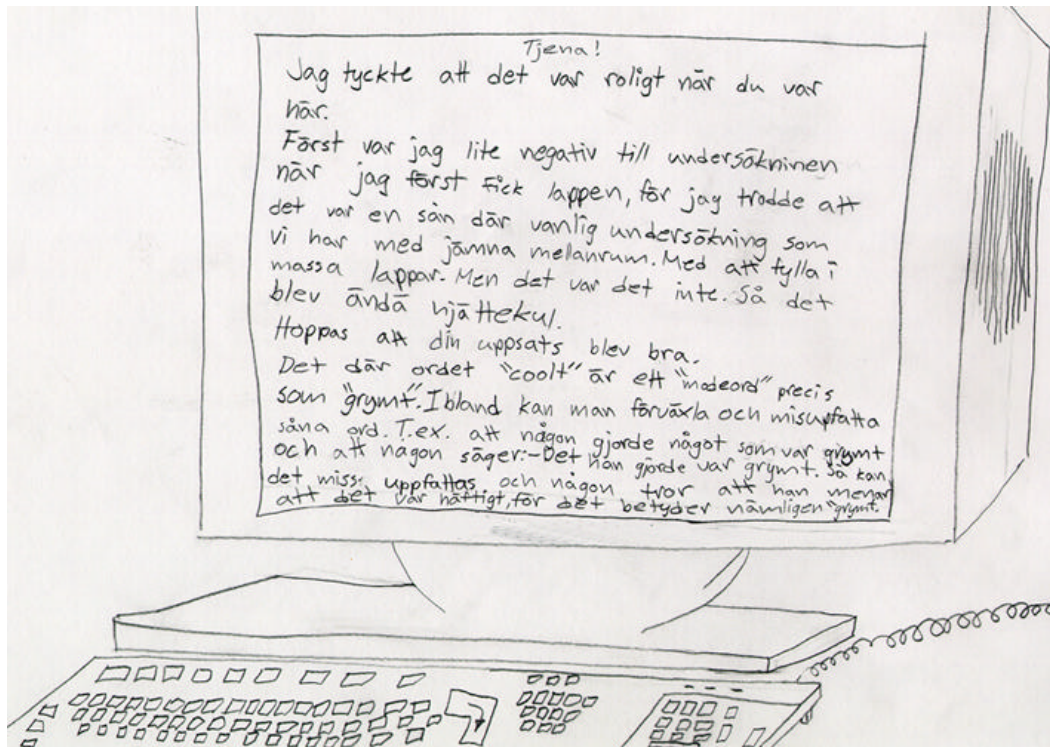 Tjena!
Jag tyckte att det var roligt när du var
här.
Först var jag lite negativ till undersökninen
när jag först fick lappen, för jag trodde att
det var en sån där vanlig undersökning som
vi har med jämna melanrum. Med att fylla i
massa lappar. Men det var det inte. Så det
blev ändå hjättekul.
Hoppas att din uppsats blev bra.
Det där ordet "coolt" är ett "modeord" precis
som "grymt". Ibland kan man förväxla och misupfatta
såna ord. T.ex. att någon gjorde något som var grymt
och att någon säger:-Det han gjorde var grymt. Så kan
det miss- uppfattas och någon tror att han menar
att det var häftigt, för det betyder nämligen "grymt.